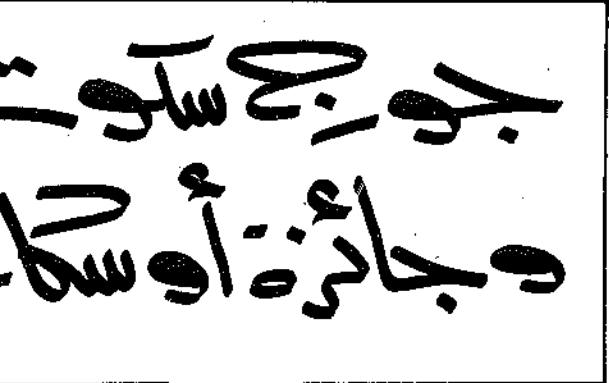 جورج سكوت
وجائزة أوسكا